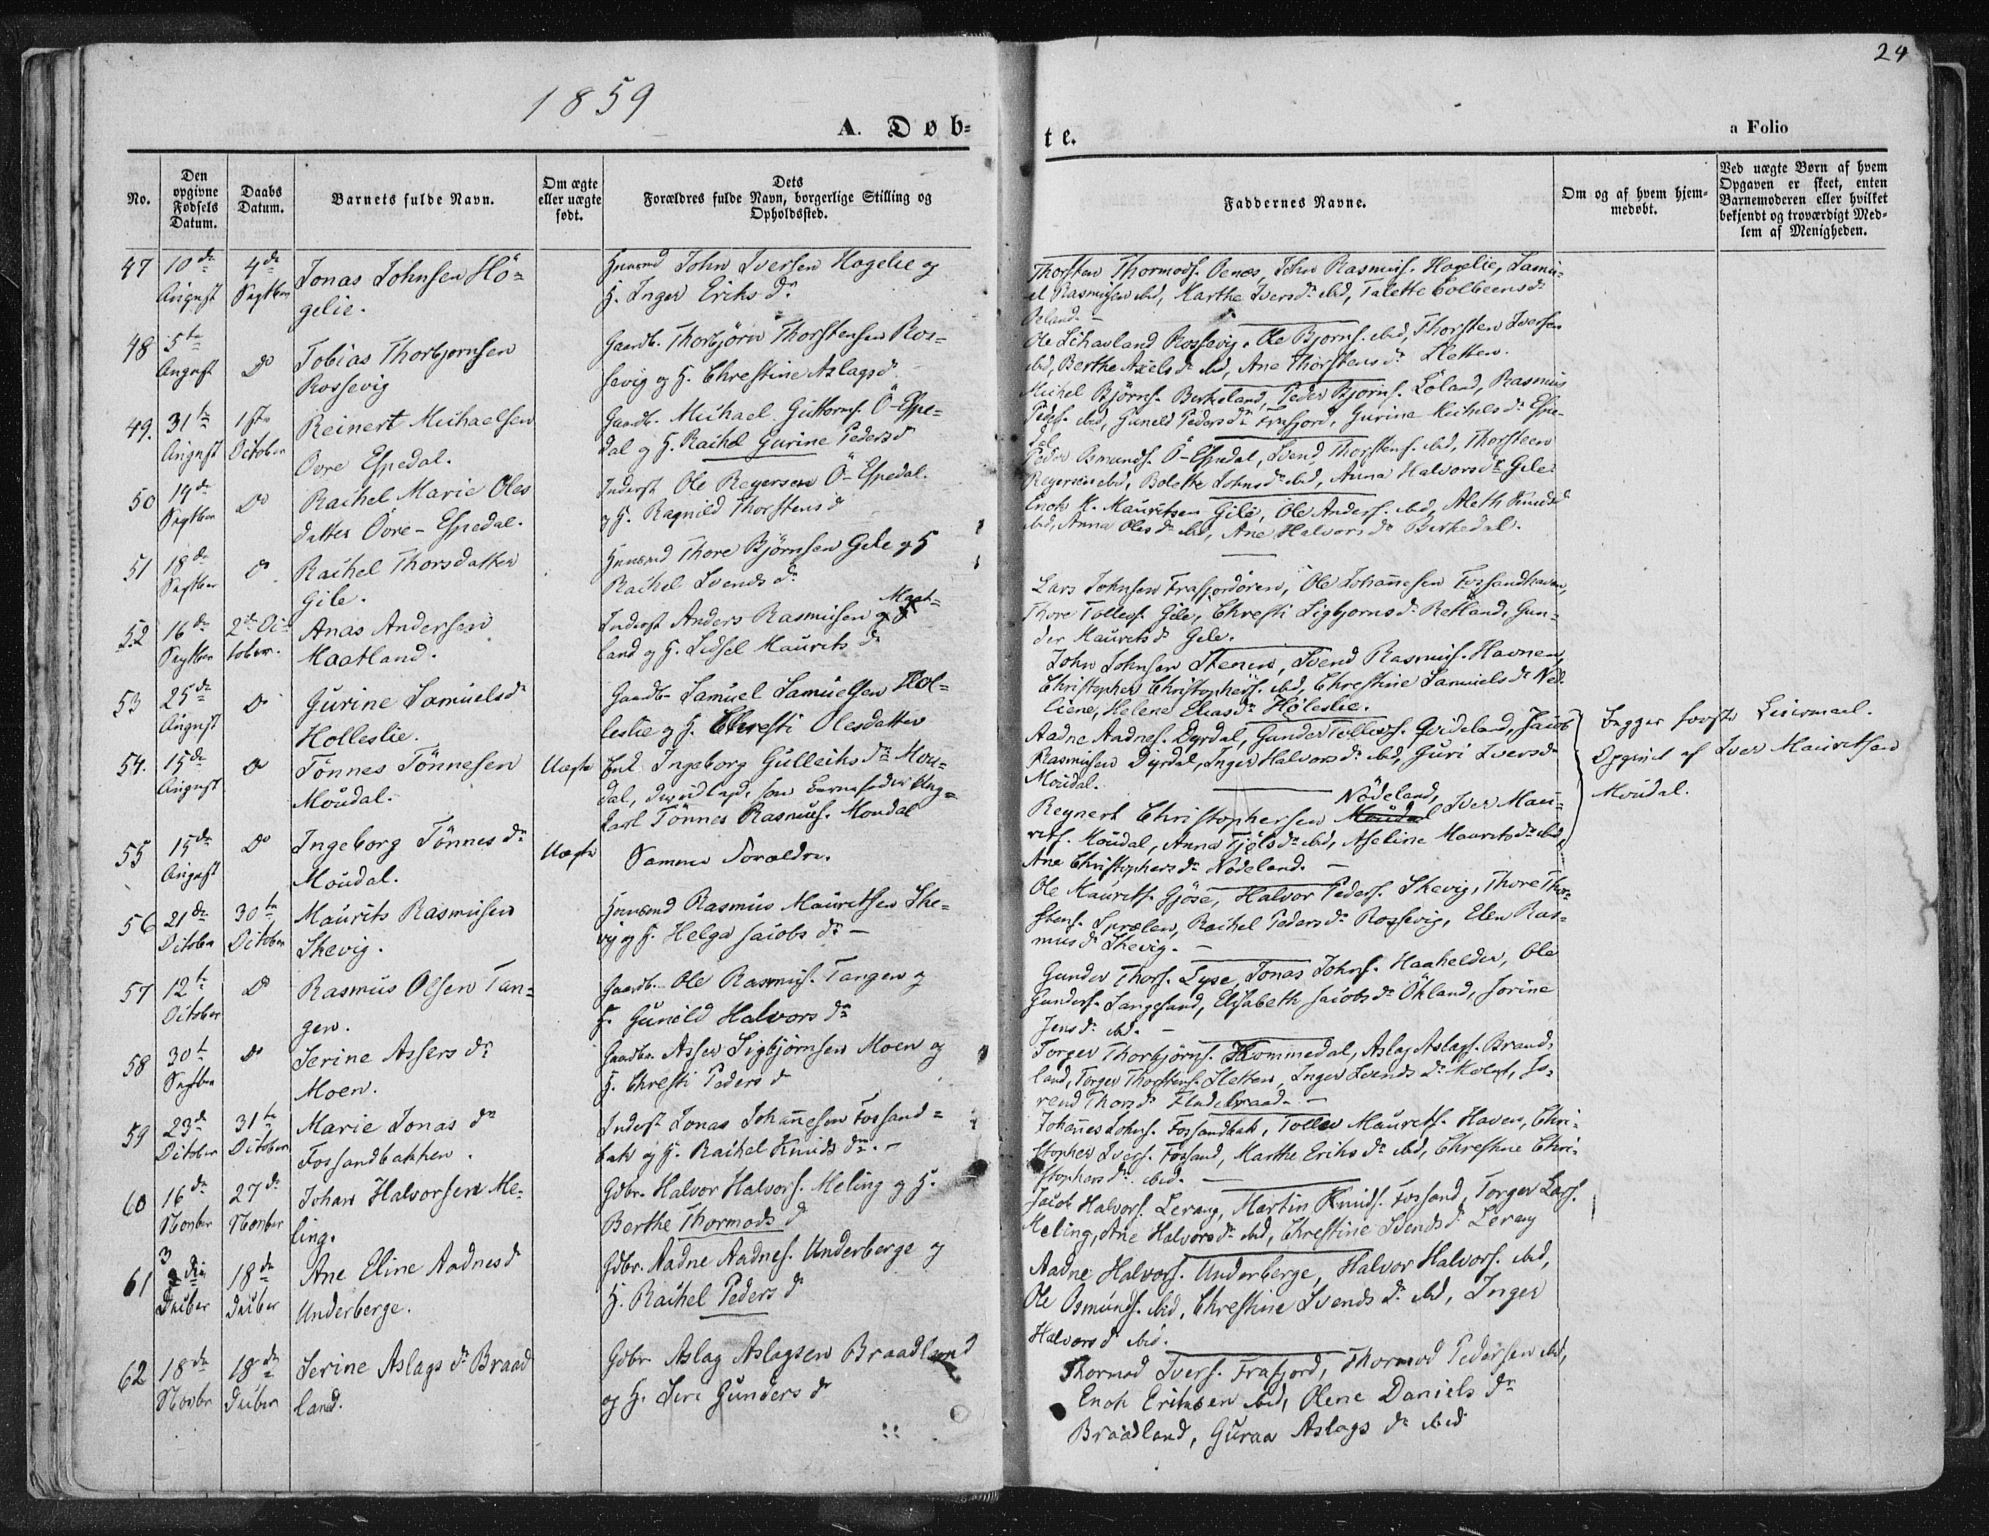 24
1859
A. Døb=
te.
a Folio
No.
Den opgivne Fødsels Datum.
Daabs Datum.
Barnets fulde Navn.
Om ægte eller uægte født.
Dets Forældres fulde Navn, borgerlige Stilling og Opholdssted.
Faddernes Navne.
Om og af hvem hjem-
medøbt.
Ved uægte Børn af hvem
Opgaven er skeet, enten
Barnemoderen eller hvilket
bekjendt og troværdigt Med-
lem af Menigheden.
47 10de August 4de Septber Jonas Johnsen Hö=
gelie.
Huusmd John Iversen Hogelie og
H. Inger Eriks dr
Thorsten Thormods. Oenæs, John Rasmus. Hogelie, Samu-
el Rasmusen ibid, Marthe Ivers dr ibid, Talette Colbeens dr
48 5te August Do Tobias Thorbjørnsen
Rossevig
Gaardb. Thorbjörn Thorstensen Ros-
sevig og H. Christine Aslags d
Ole Rossevig, Ole Bjorns. ibid, Thorsten Iversen
ibid, Berthe Axels dr ibid, Ane Thorstens dr Sletten.
49. 31te August 1ste October Reinert Michaelsen
Övre Espedal.
Gaardb. Michael Guttorms. Ö-Espe-
dal og H. Rachel Gurine Peders d
Michel Björns. Berkeland, Peder Bjorns. Löland, Rasmus
Peders. ibid, Guneld Peders dr Frafjord, Gurine Michels dr Espe-
dal
50 19de Septber Do Rachel Marie Oles
datter Övre-Espedal.
Inderst Ole Regersen Ö-Espedal.
og H. Ragnild Thorstens d
Peder Osmunds. Ö-Espedal, Svend Thorstens. ibid, Thorsteen
Regersen ibid, Bolette Johns dr ibid, Anna Halvors dr Gile
51 18de Septber Do Rachel Thorsdatter
Gile.
Huusmd Thore Björnsen Gile og H
Rachel Svends dr
Enok K. Mauritsen Gile, Ole Anders. ibid, Aleth Knuds d
ibid, Anna Oles dr ibid, Ane Halvors dr Birkedal.
52 16de Septber 2den October. Anas Andersen
Maatland.
Inderst Anders Rasmusen Maat-
land og H. Sidsel Maurits dr
Lars Johnsen Frafjordören, Ole Johannesen Fossandhaven,
Thore Tolless. Gile, Christi Sigbjorns dr Retland, Gun-
der Maurits d Gile.
53 25de August Do Gurine Samuels dr
Holleslie.
Gaardbr Samuel Samuelsen Hol-
leslie og H. Christi Olesdatter
John Johnsen Stenen, Svend Rasmus. Havnen,
Christopher Christophers. ibid, Christine Samuels dr Ned-
liene, Helene Elias dr Höleslie.
54. 15de August Do Tönnes Tönnesen
Möudal.
Uægte Enk. Ingeborg Gulleiks dr Mou-
dal, som Barnefader Ung-
karl Tönnes Rasmus. Moudal
Aadne Aadnes. Dyrdal, Gunder Tollevs. Gvideland, Jacob
Rasmusen Dyrdal, Inger Halvors dr ibid, Guri Ivers dr
Möudal.
Begges første Leiermaal.
Opgivet af Iver Mauritsen
Moudal.
55 15de August Do Ingeborg Tönnes dr
Möudal.
Uægte Samme Forældre.
Reynert Christophersen Nödeland, Iver Mau-
rits. Möudal, Anna Fjels dr ibid, Aseline Maurits dr ibid,
Ane Christophers dr Nödeland.
56 21de October 30te October Maurits Rasmusen
Skevig.
Huusmd Rasmus Mauritsen Ske-
vig og H. Helga Jacobs dr
Ole Maurits. Gjöse, Halvor Peders. Skevig, Thore Thor-
stens. Sprælen, Rachel Peders dr Rossevig, Elen Ras-
mus d Skevig.
57 12te October Do Rasmus Olsen Tan-
gen.
Gaardb. Ole Rasmus. Tangen og
H. Gunild Halvors dr
Gunder Thors. Lyse, Jonas Johns. Haahelder, Ole
Gunders. Sangesand, Elisabeth Jacobs dr Ökland, Sorine
Jens dr ibid.
58 30te Septber Do Serine Assers dr
Moen.
Gaardbr. Asser Sigbjörnsen Moen og
H. Christi Peders d
Torger Thorbjörns. Kommedal, Aslag Aslags. Braad-
land, Torger Thorstens. Sletten, Inger Svends dr Molaf, So-
rend Thors dr Fladebraad.
59 23de October 31te October Marie Jonas dr
Fossandbakken.
Inderst Jonas Johannesen Fossand=
bak og H. Rachel Knuds dr.
Johannes Johns. Fossandbak, Tollev Maurits. Haven, Chri-
stopher Ivers. Fossand, Marthe Eriks dr ibid, Christine Chri-
stophers dr ibid.
60 16de Novber 27de Novber Johan Halvorsen Me-
ling.
Gdbr. Halvor Halvors. Meling og H.
Berthe Thormods d
Jacob Halvors. Lerang, Martin Knuds. Fossand, Torger Lars.
Meling, Ane Halvors dr ibid, Christine Svends d Lerang
61 3 Decber 18de Decber Ane Eline Aadnes d
Underberge.
Gdbr. Aadne Aadnes. Underberge og
H. Rachel Peders d
Aadne Halvors. Underberge, Halvor Halvors. ibid,
Ole Osmunds. ibid, Christine Svends dr ibid, Inger
Halvors d ibid.
62 18de Novbr 18de Decber Serine Aslags dr Braad
land.
Gdbr Aslag Aslagsen Braadland
og H. Siri Gunders dr
Thormod Ivers. Frafjord, Thormod Pedersen ibid,
Enok Eriksen ibid, Olene Daniels dr
Braadland, Guraa Aslags dr ibid